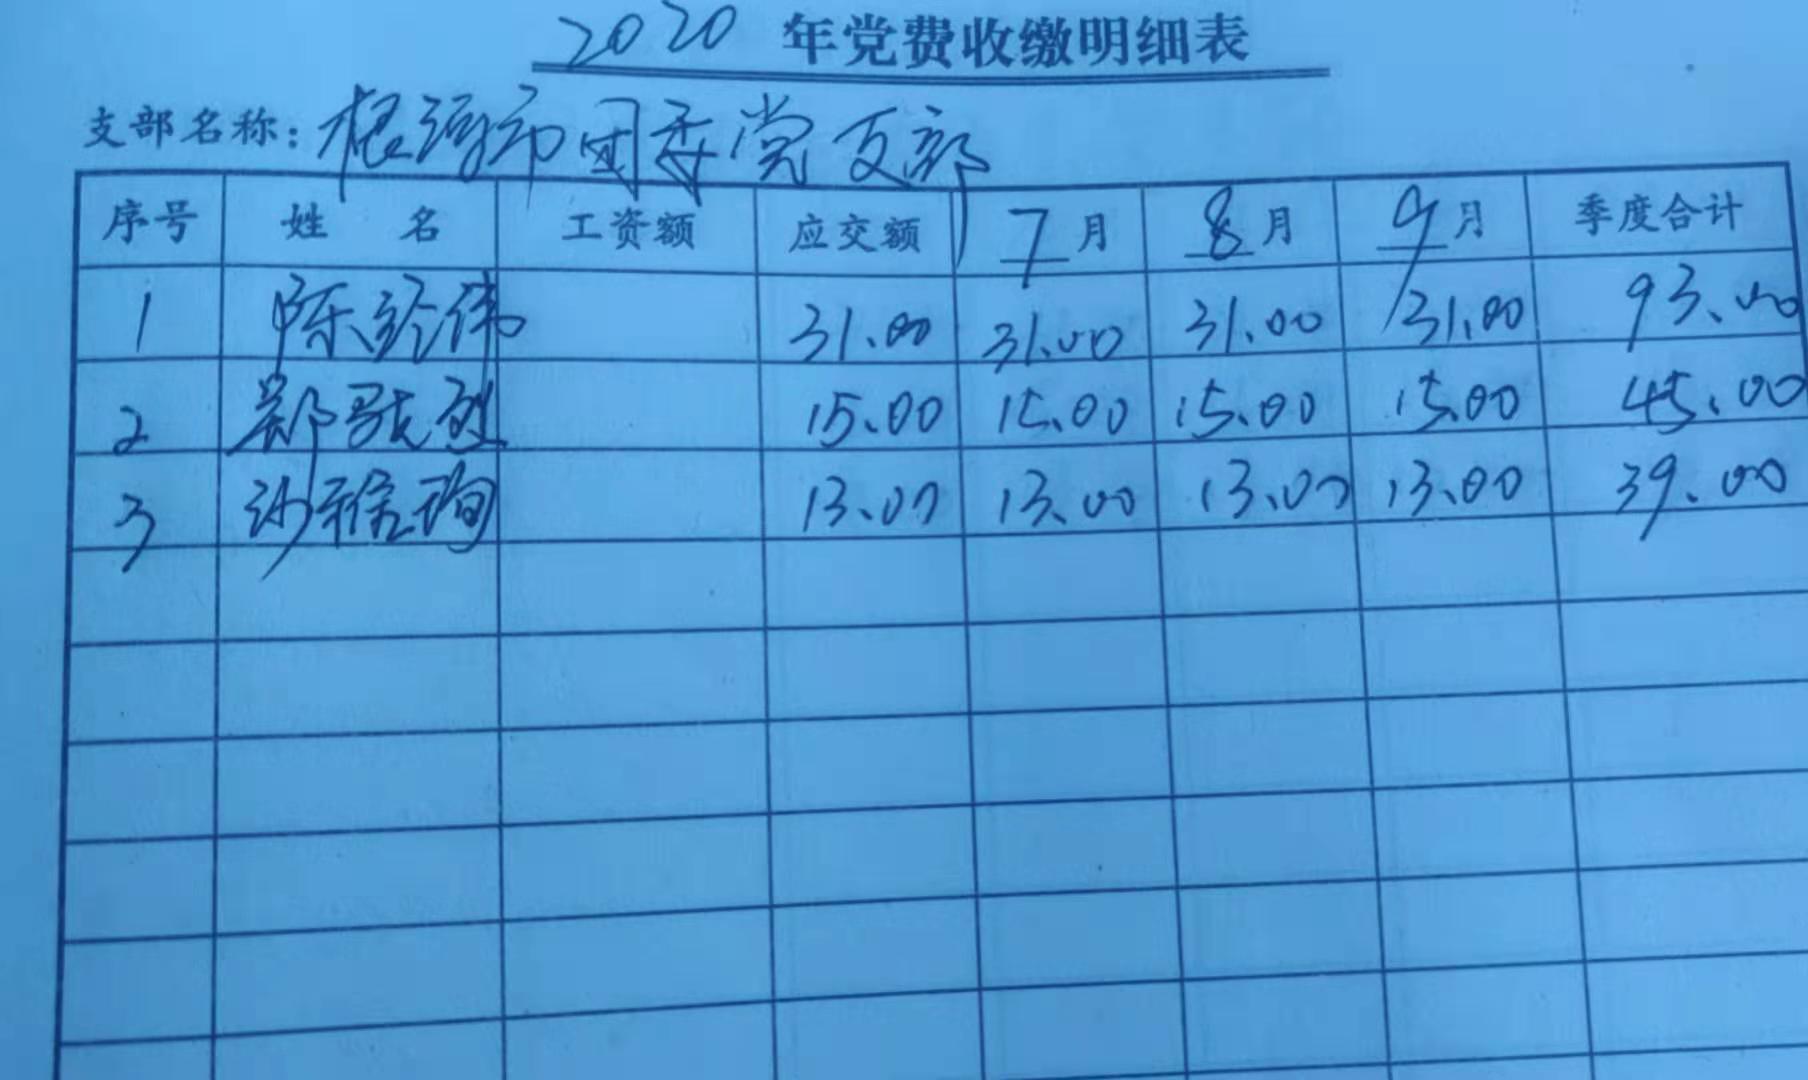 2020 年党费收缴明细表
支部名称: 根河市团委党支部
序号 姓 名 工资额 应交额 7月 8月 9月 季度合计
1 陈经伟 31.00 31.00 31.00 31.00 93.00
2 郑 15.00 15.00 15.00 15.00 45.00
3 沙雅询 13.00 13.00 13.00 13.00 39.00